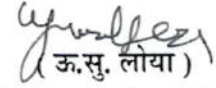 ( ऊ.सु. लोया )